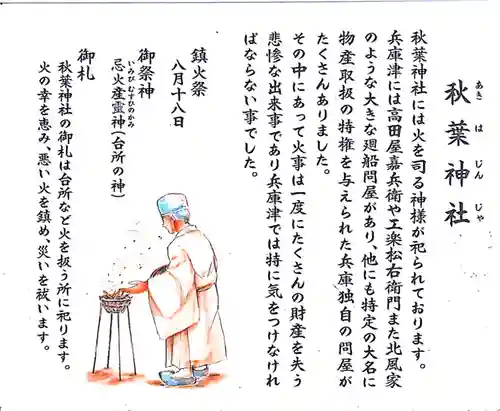 秋葉神社
あきはじんじゃ
秋葉神社には火を司る神様が祀られております。
兵庫津には高田屋嘉兵衛や工楽松右衛門また北風家
のような大きな廻船問屋があり、他にも特定の大名に
物産取扱の特権を与えられた兵庫独自の問屋が
たくさんありました。
その中にあって火事は一度にたくさんの財産を失う
悲惨な出来事であり兵庫津では特に気をつけなけれ
ばならない事でした。
鎮火祭
八月十八日
御祭神
いみび むすひのかみ
忌火産霊神(台所の神)
御札
秋葉神社の御札は台所など火を扱う所に祀ります。
火の幸を恵み、悪い火を鎮め、災いを祓います。